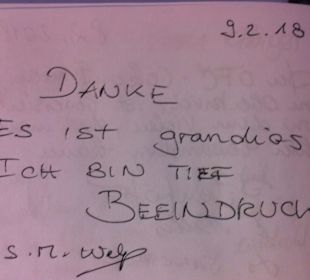 9.2.18
DANKE
ES IST grandios
ICH BIN TIEF
BEEINDRUCK